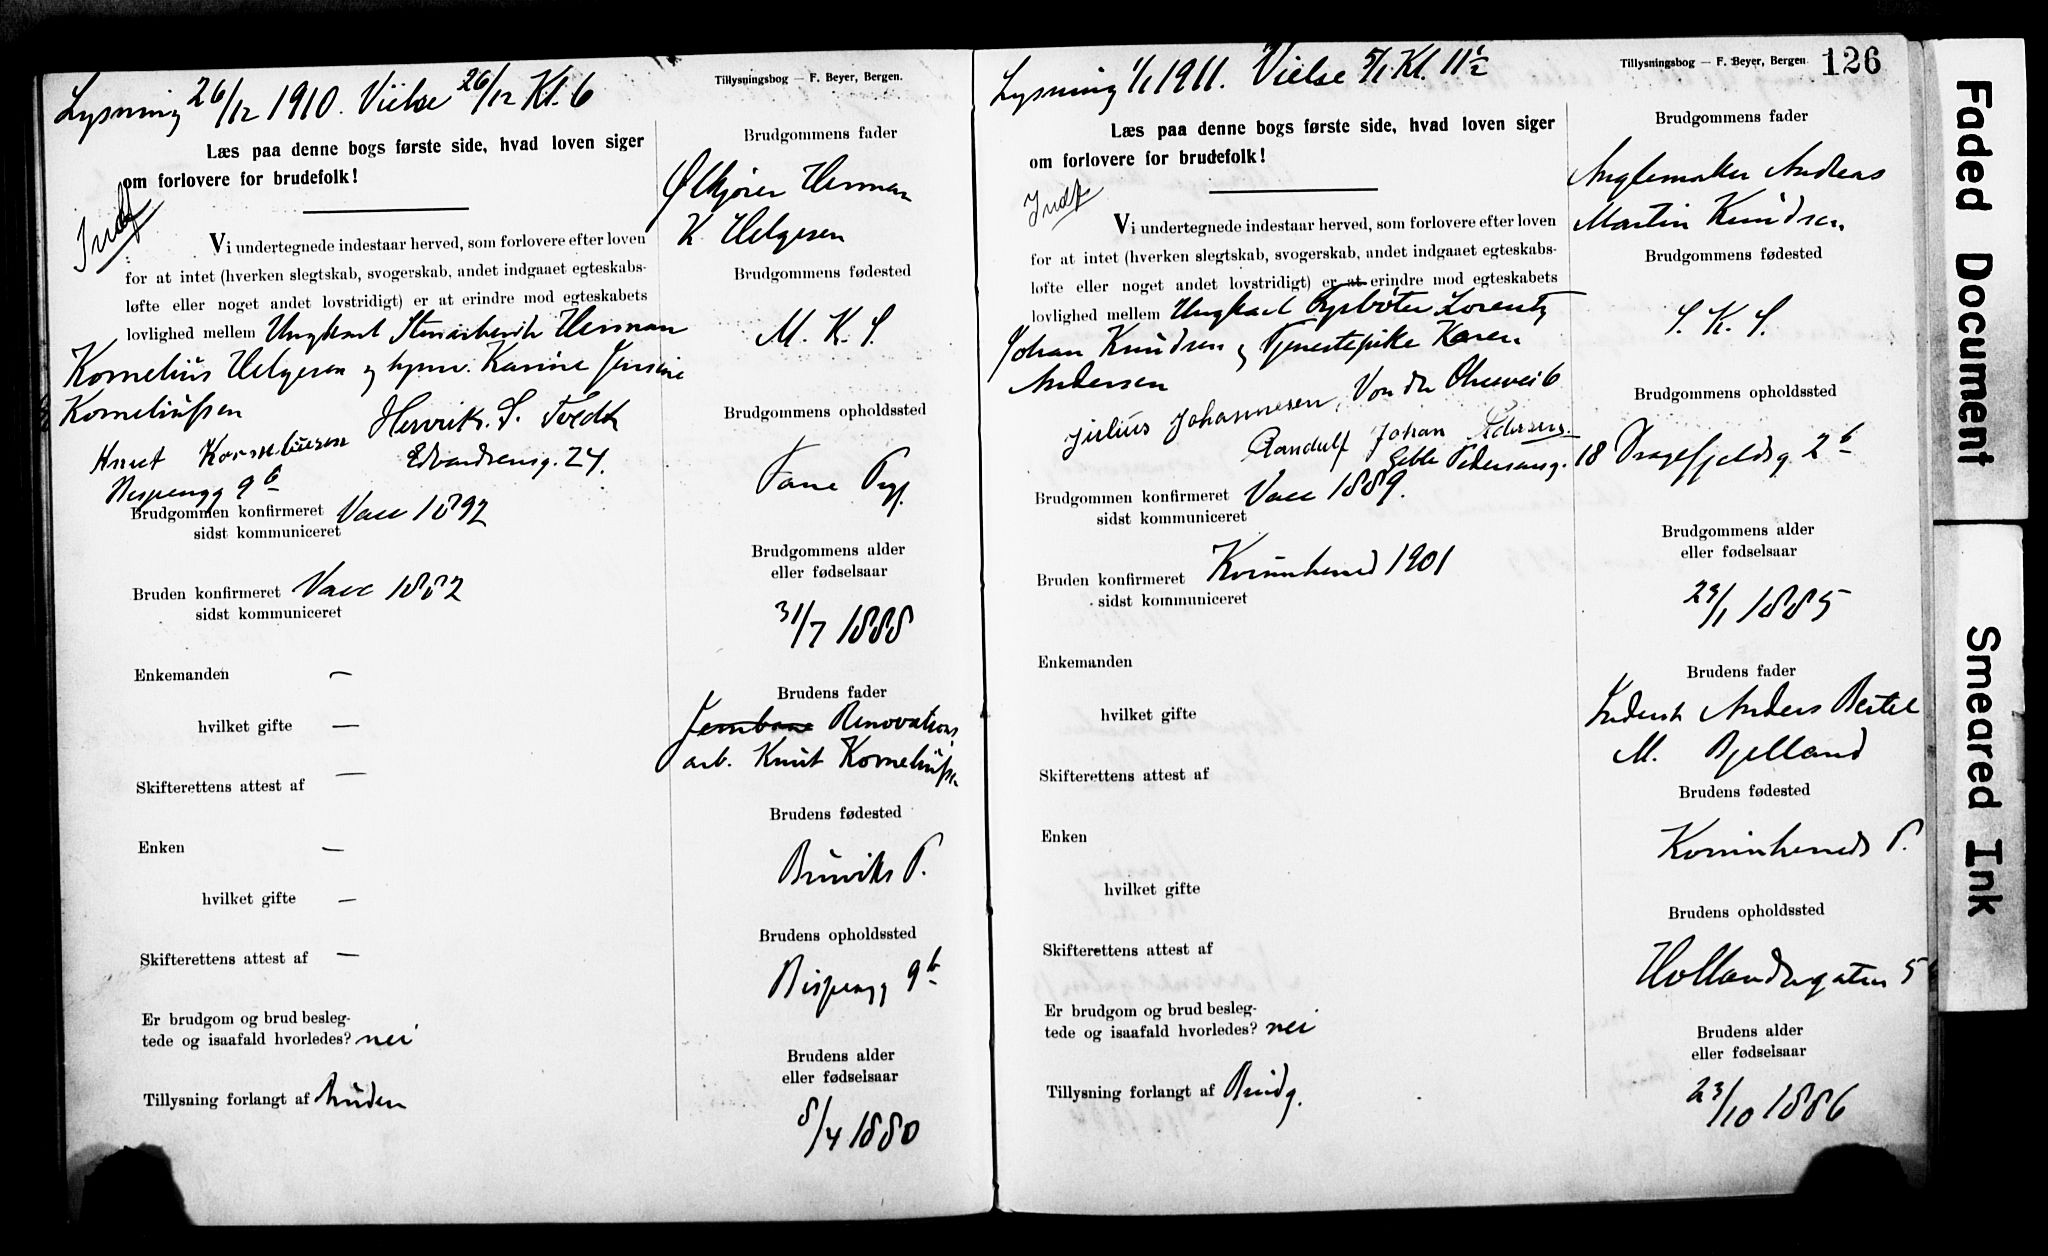 Lysning 26/12 1910. Vielse 26/12 Kl. 6
Tillysningsbog — F. Beyer, Bergen.
Læs paa denne bogs første side, hvad loven siger
om forlovere for brudefolk!
Indf
Vi undertegnede indestaar herved, som forlovere efter loven
for at intet (hverken slegtskab, svogerskab, andet indgaaet egteskabs-
løfte eller noget andet lovstridigt) er at erindre mod egteskabets
lovlighed mellem Ungkarl Stenarbeider Herman
Kornelius Helgesen og Karine Jensine
Korneliussen
Knut Korneliussen Henrik S. Tvedt
Bispengg 9b Edvardsensg. 24.
Brudgommen konfirmeret Vacc 1892
sidst kommuniceret
Bruden konfirmeret Vacc 1882
sidst kommuniceret
Enkemanden —
hvilket gifte —
Skifterettens attest af —
Enken —
hvilket gifte —
Skifterettens attest af —
Er brudgom og brud besleg-
tede og isaafald hvorledes? nei
Tillysning forlangt af Bruden
Brudgommens fader
Ølkjører Herman
K Helgesen
Brudgommens fødested
M. K. S.
Brudgommens opholdssted
Fane Pgj.
Brudgommens alder
eller fødselsaar
31/7 1888
Brudens fader
Jernbane Renovations
arb. Knut Korneliussen
Brudens fødested
Bruviks P.
Brudens opholdssted
Bispengg 9b
Brudens alder
eller fødselsaar
8/4 1880
Lysning 1/1 1911. Vielse 5/1 Kl. 11½
Tillysningsbog — F. Beyer, Bergen.
126
Læs paa denne bogs første side, hvad loven siger
om forlovere for brudefolk!
Indf
Vi undertegnede indestaar herved, som forlovere efter loven
for at intet (hverken slegtskab, svogerskab, andet indgaaet egteskabs-
løfte eller noget andet lovstridigt) er at erindre mod egteskabets
lovlighed mellem Ungkarl Fyrbøter Lorentz
Johan Knudsen og Tjenestepike Karen
Andersen
Julius Johannesen, Von der
Randulf Johan Pedersen
Geble Pedersensg. 18
Brudgommen konfirmeret Vacc 1889.
sidst kommuniceret
Bruden konfirmeret Kvinnherred 1901
sidst kommuniceret
Enkemanden
hvilket gifte
Skifterettens attest af
Enken
hvilket gifte
Skifterettens attest af
Er brudgom og brud besleg-
tede og isaafald hvorledes? nei
Tillysning forlangt af Brudg.
Brudgommens fader
Anglemaker Andreas
Martin Knudsen
Brudgommens fødested
S. K. S.
Brudgommens opholdssted
Dragefjeldsg 2b
Brudgommens alder
eller fødselsaar
29/1 1885
Brudens fader
Inderst Anders Bertel
M. Bjelland
Brudens fødested
Kvinnherreds P.
Brudens opholdssted
Hollendergaten 5
Brudens alder
eller fødselsaar
23/10 1886
Faded Document
Smeared Ink